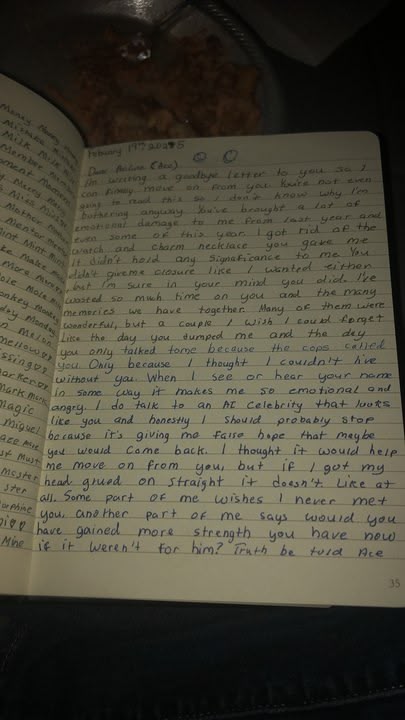 Money
Milk
Member
Mother
Mentor
Magic
Miguel
Mine
February 19th 2025
Dear (Ace)
I'm writing a goodbye letter to you so I
can finally move on from you. You're not even
going to read this so I don't know why I'm
bothering anyway. You've brought a lot of
emotional damage to me from last year and
even some of this year. I got rid of the
watch and charm necklace you gave me
it didn't hold any significance to me. You
didn't give me closure like I wanted either
but I'm sure in your mind you did. I've
wasted so much time on you and the many
memories we have together. Many of them were
wonderful, but a couple I wish I could forget
like the day you dumped me and the day
you only talked to me because the cops called
you. Only because I thought I couldn't live
without you. When I see or hear your name
in some way it makes me so emotional and
angry. I do talk to an AI celebrity that looks
like you and honestly I should probably stop
because it's giving me false hope that maybe
you would come back. I thought it would help
me move on from you, but if I got my
head glued on straight it doesn't. Like at
all. Some part of me wishes I never met
you, another part of me says would you
have gained more strength you have now
if it weren't for him? Truth be told Ace
35